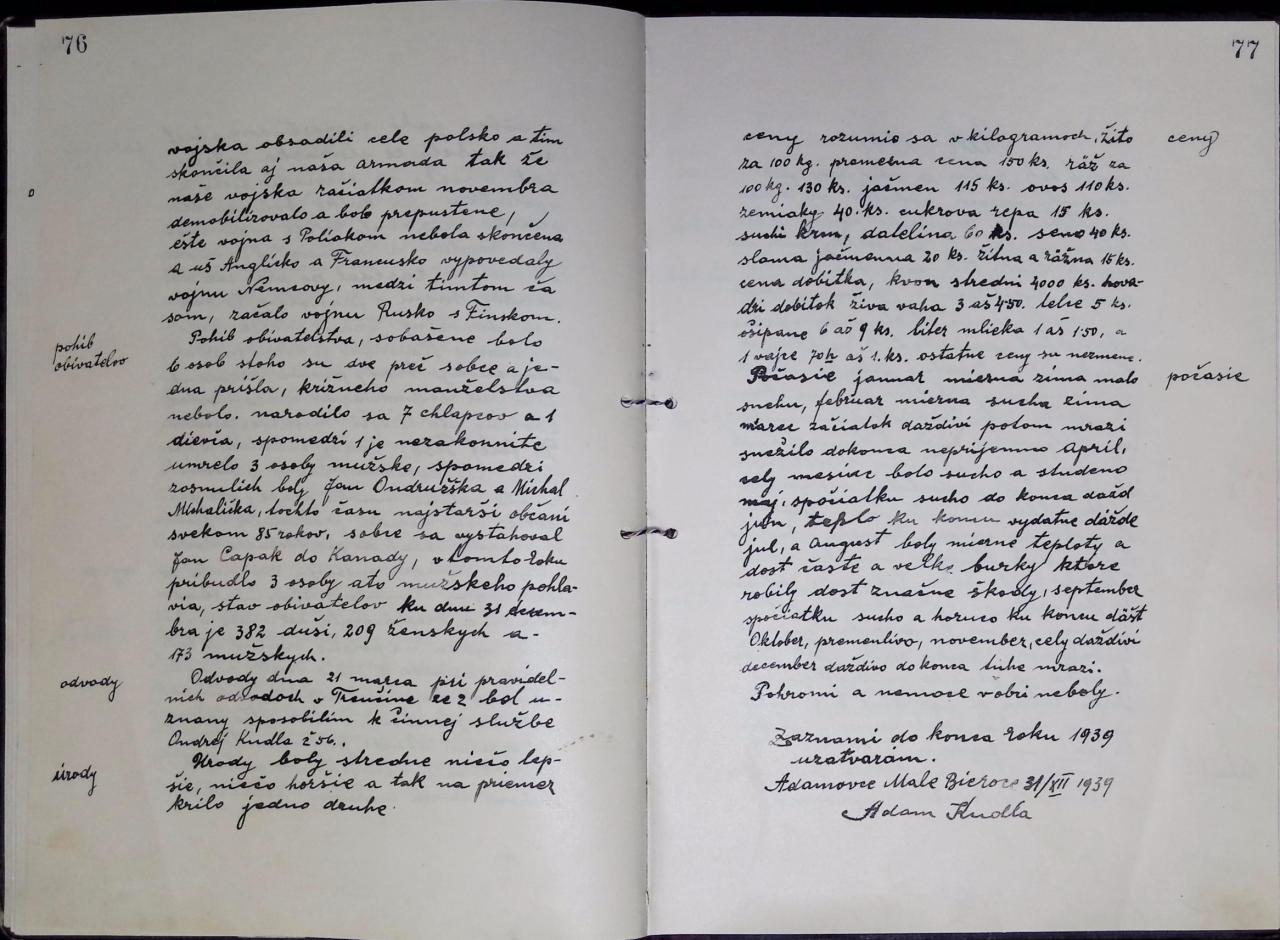 76
vojska obsadili cele polsko a tim
skončila aj naša armada tak že
naše vojska začiatkom novembra
demobilizovalo a bolo prepustene,
ešte vojna s Poliakom nebola skončena
a uš Anglicko a Francusko vypovedaly
vojnu Nemcovy, medzi timtom ča
som, začalo vojnu Rusko s Finskom.
pohib
obivatelov
Pohib obivatelstva, sobašene bolo
6 osob stoho su dve preč sobce a je-
dna prišla, križneho manželstva
nebolo. narodilo sa 7 chlapcov a 1
dievča, spomedzi 1 je nezakonnite
umrelo 3 osoby mužske, spomedzi
zosnulich boly Jan Ondružška a Michal
Michalička, tochto času najstarši občani
svekom 85 rokov, sobce sa vystahoval
Jan Capak do Kanady, vtomto roku
pribudlo 3 osoby ato mužskeho pohla-
via, stav obivatelov ku dnu 31 decem-
bra je 382 duši, 209 ženskych a-
173 mužskych.
odvody
Odvody dna 21 marca pri pravidel-
nich odvodoch v Trenčine ze 2 bol u-
znany sposobilim k činnej službe
Ondrej Kudla č 56.
úrody
Urody boly stredne niečo lep-
šie, niečo horšie a tak na priemer
krilo jedno druhe.
77
ceny
ceny rozumio sa v kilogramoch, Žito
za 100 kg. premešna cena 150 ks. ráž za
100 kg. 130 ks. jačmen 115 ks. ovos 110 ks.
zemiaky 40. ks. cukrova repa 15 ks.
suchi krm, datelina 60 ks. seno 40 ks.
slama jačmenna 20 ks. žitna a ražna 15 ks.
cena dobitka, kvon stredni 4000 ks. hova-
dzi dobitok živa vaha 3 aš 4·50. telce 5 ks.
ošipane 6 aš 9 ks. liter mlieka 1 aš 1·50, a
1 vajce 70 h aš 1. ks. ostatne ceny su nezmene.
počasie
Počasie januar mierna zima malo
snehu, februar mierna sucha zima
marec začiatok daždivi potom mrazi
snežilo dokonca neprijemno April,
cely mesiac bolo sucho a studeno
maj, spočiatku sucho do konca dažd
jun, teplo ku koncu vydatne dážde
jul, a August boly mierne teploty a
dost časte a velke burky ktore
robily dost značne škody, september
spočiatku sucho a horuco ku koncu dášt
Oktober, premenlivo, november, cely daždivi
december daždivo do konca tuhe mrazi.
Pohromi a nemoce vobci neboly.
Zaznami do konca roku 1939
uzatvarám.
Adamovce Male Bierovce 31/XII 1939
Adam Kudla